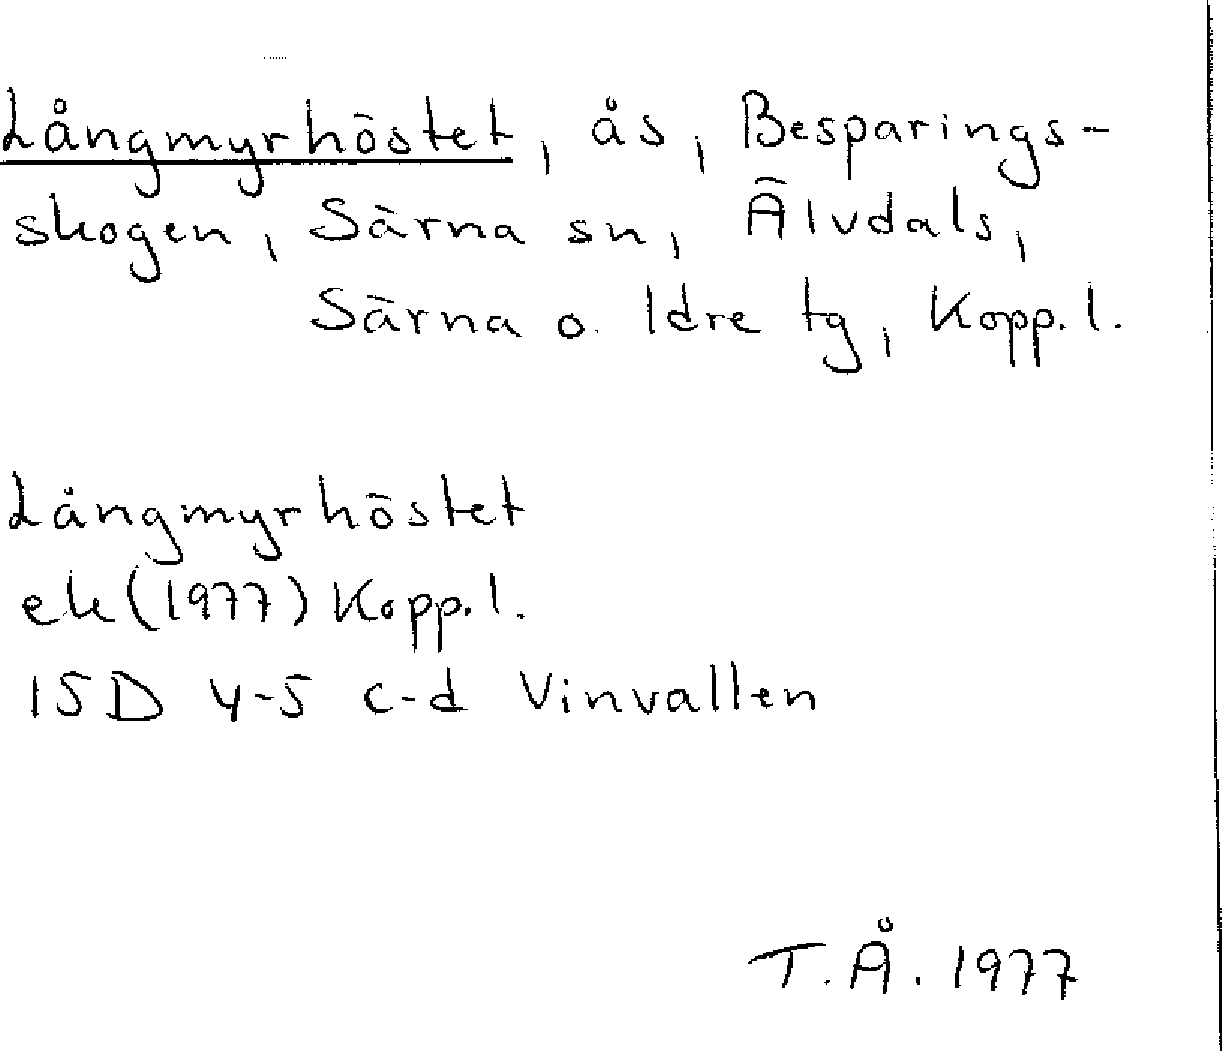 Långmyrhöstet, ås, Besparings-
skogen, Särna sn, Älvdals,
Särna o. Idre tg, Kopp. l.
Långmyrhöstet
ek (1977) Kopp. l.
15D 4-5 c-d Vinvallen
T.Å. 1977